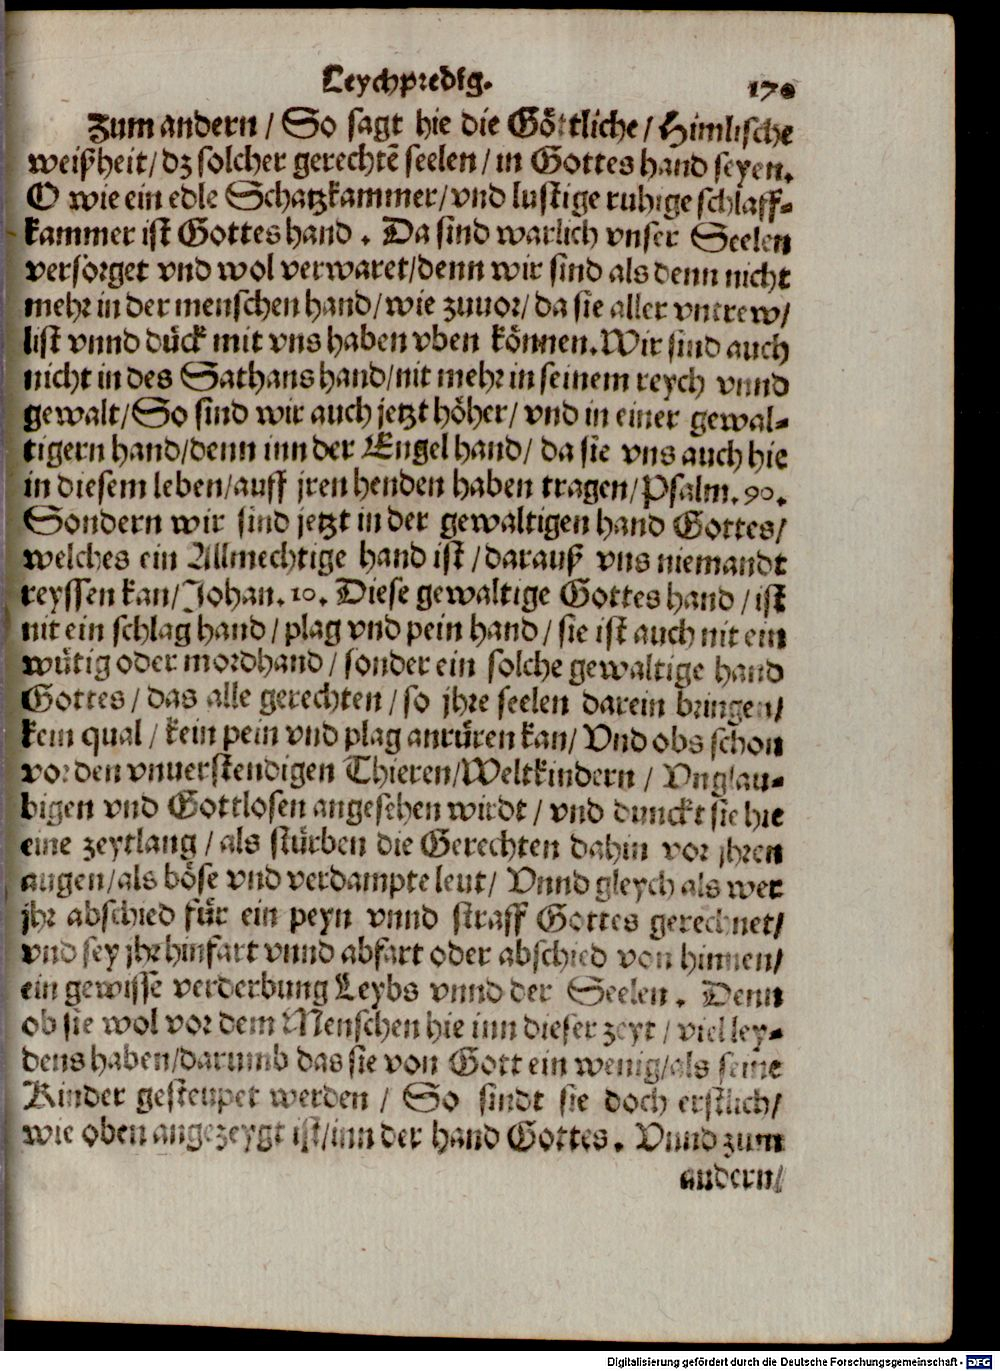 Leychpredig. 170
Zum andern / So sagt hie die Göttliche / Himlische
weißheit / dz solcher gerechtẽ seelen / in Gottes hand seyen.
O wie ein edle Schatzkammer / vnd lustige ruhige schlaff-
kammer ist Gottes hand. Da sind warlich vnser Seelen
versorget vnd wol verwaret / denn wir sind als denn nicht
mehr in der menschen hand / wie zuuor / da sie aller vntrew /
list vnnd dück mit vns haben vben können. Wir sind auch
nicht in des Sathans hand / nit mehr in seinem reych vnnd
gewalt / So sind wir auch jetzt höher / vnd in einer gewal-
tigern hand / denn inn der Engel hand / da sie vns auch hie
in diesem leben / auff jren henden haben tragen / Psalm. 90.
Sondern wir sind jetzt in der gewaltigen hand Gottes /
welches ein Allmechtige hand ist / darauß vns niemandt
reyssen kan / Johan. 10. Diese gewaltige Gottes hand / ist
nit ein schlag hand / plag vnd pein hand / sie ist auch nit ein
wütig oder mordhand / sonder ein solche gewaltige hand
Gottes / das alle gerechten / so jhre seelen darein bringen /
kein qual / kein pein vnd plag anrüren kan / Vnd obs schon
vor den vnuerstendigen Thieren / Weltkindern / Vnglau-
bigen vnd Gottlosen angesehen wirdt / vnd dunckt sie hie
eine zeytlang / als stürben die Gerechten dahin vor jhren
augen / als böse vnd verdampte leut / Vnnd gleych als wer
jhr abschied für ein peyn vnnd straff Gottes gerechnet /
vnd sey jhr hinfart vnnd abfart oder abschied von hinnen /
ein gewisse verderbung Leybs vnnd der Seelen. Denn
ob sie wol vor dem Menschen hie inn dieser zeyt / viel ley-
dens haben / darumb das sie von Gott ein wenig / als seine
Kinder gesteupet werden / So sindt sie doch erstlich /
wie oben angezeygt ist / inn der hand Gottes. Vnnd zum
andern /
Digitalisierung gefördert durch die Deutsche Forschungsgemeinschaft - DFG